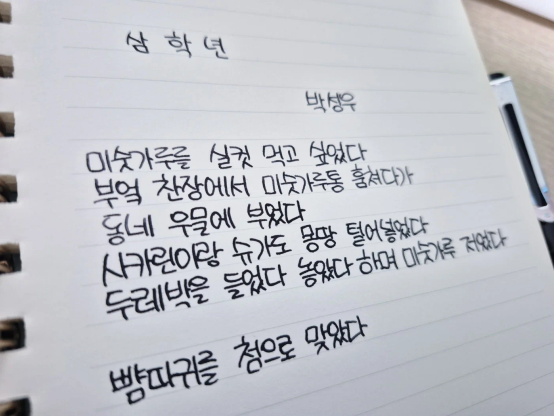 삼 학 년
박성우
미숫가루를 실컷 먹고 싶었다
부엌 찬장에서 미숫가루통 훔쳐다가
동네 우물에 부었다
사카린이랑 슈가도 몽땅 털어넣었다
두레박을 들었다 놓았다 하며 미숫가루 저었다
뺨따귀를 첨으로 맞았다